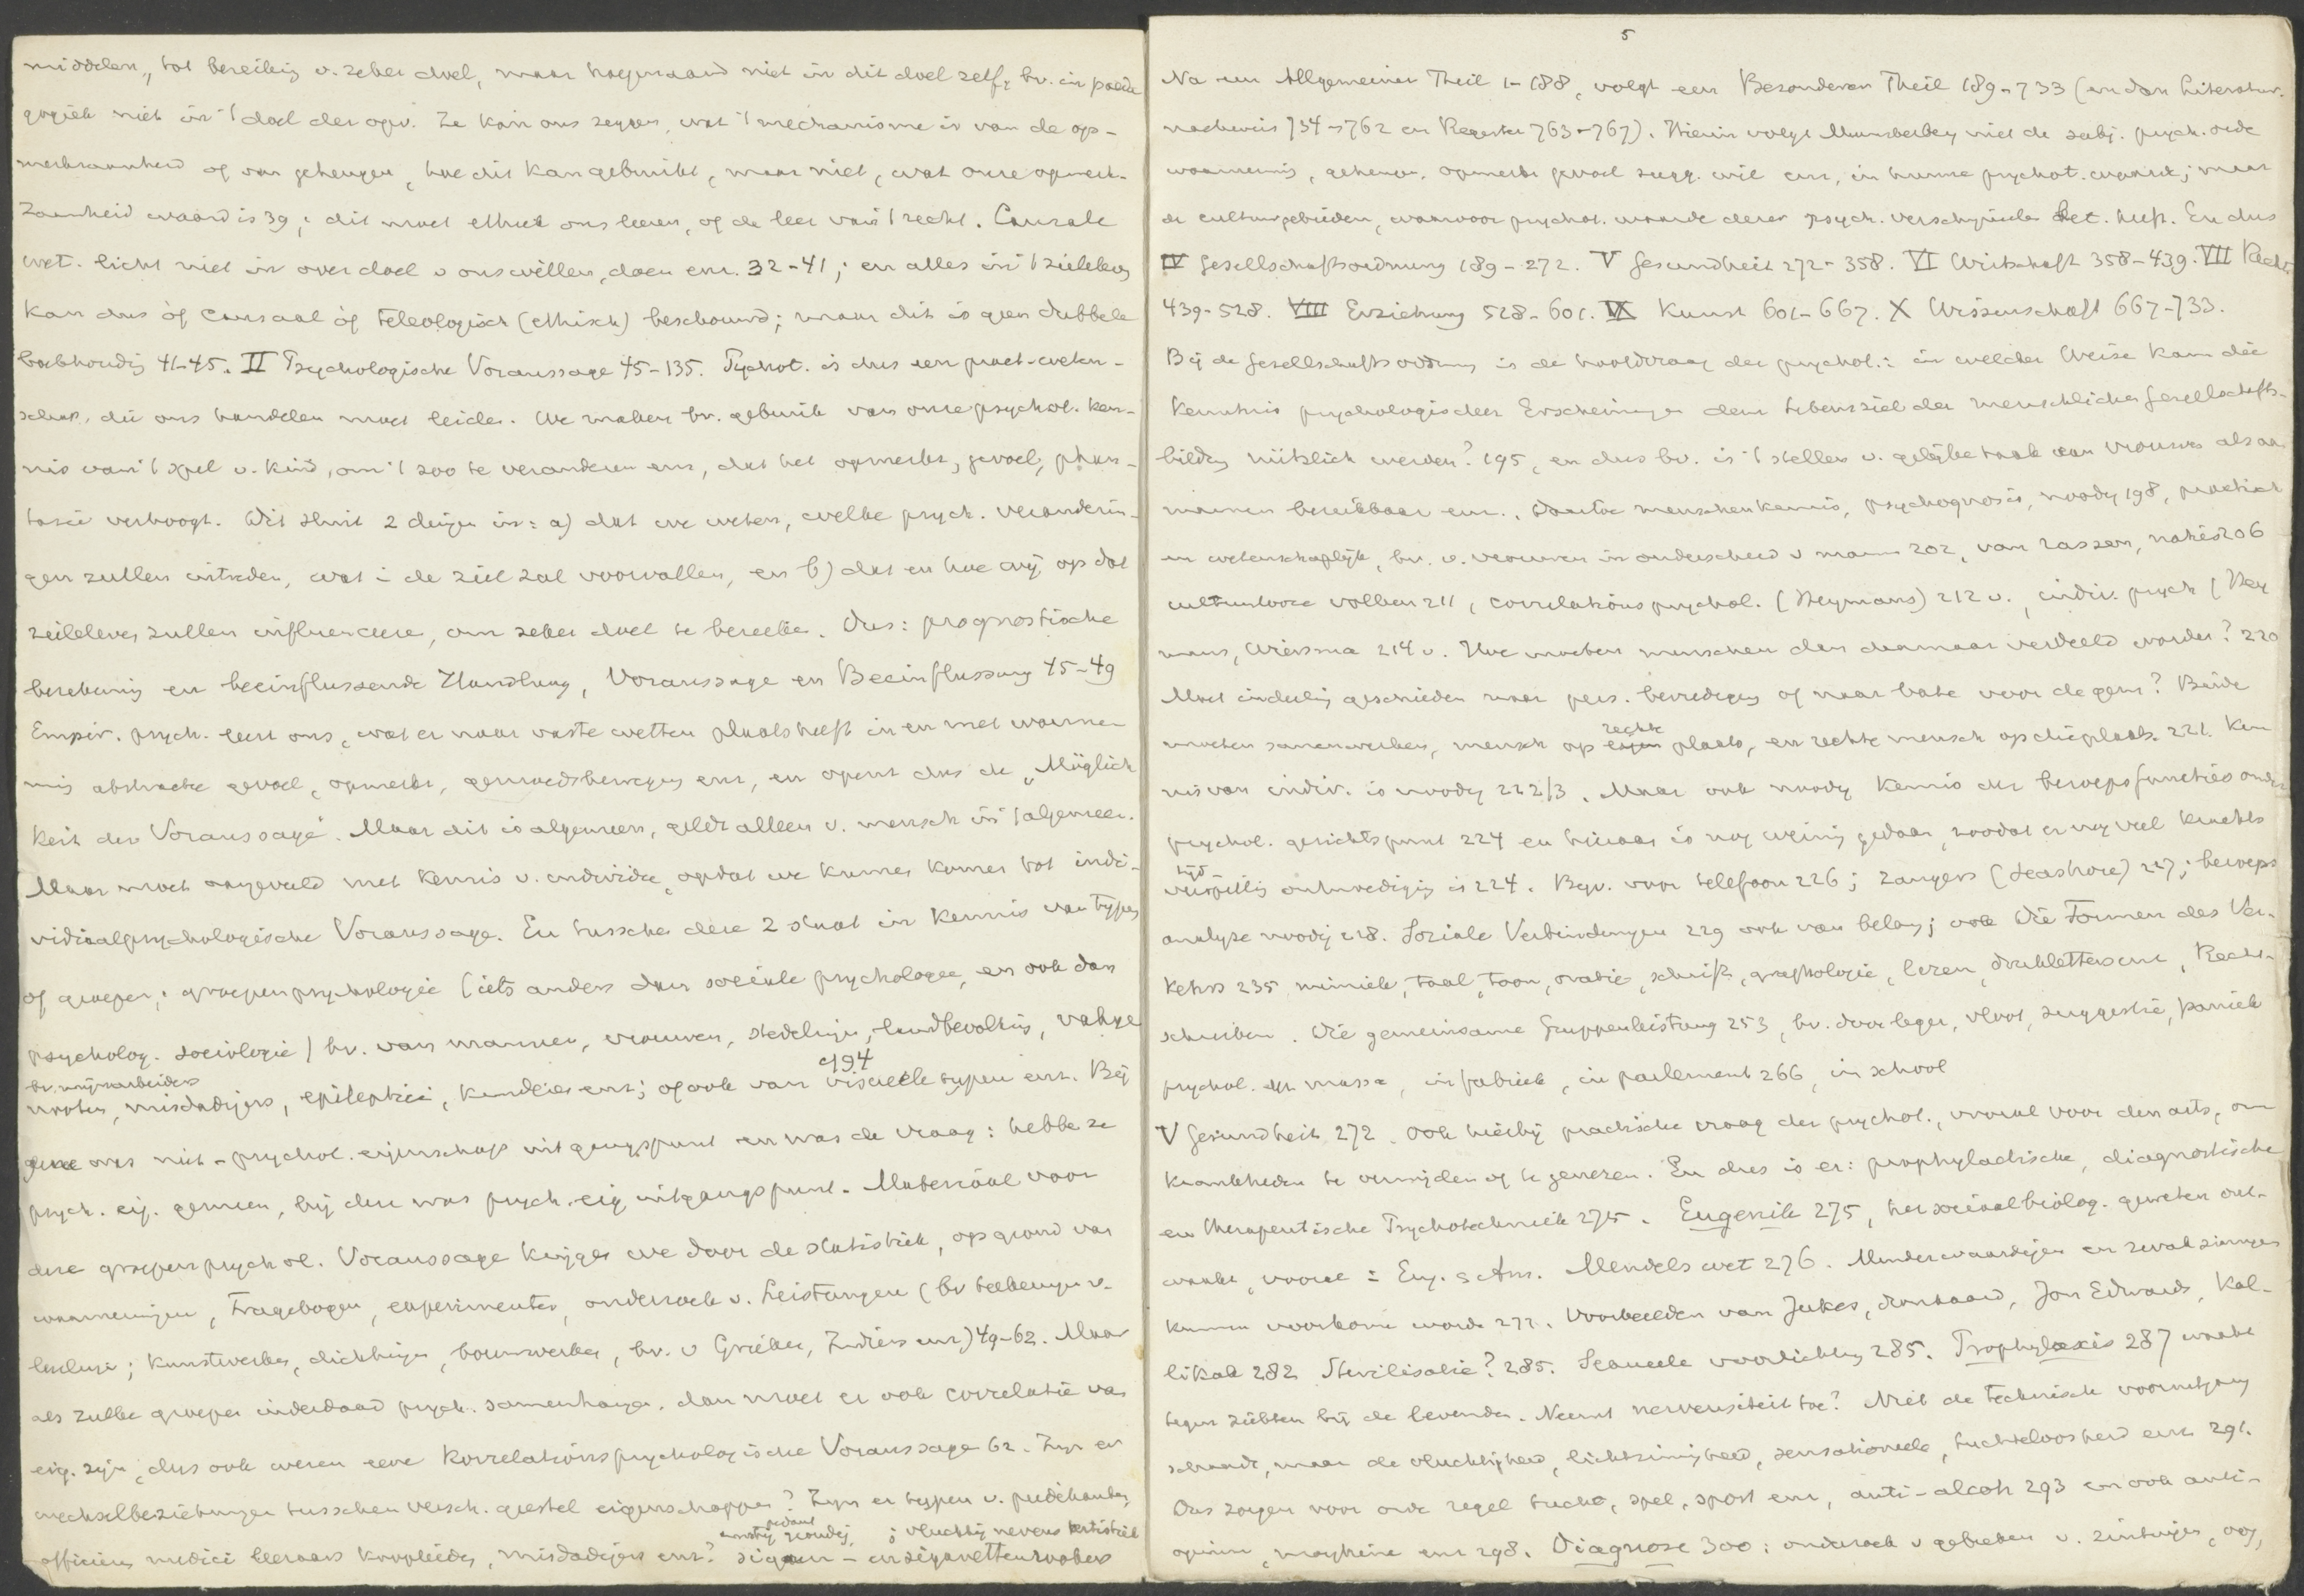 middelen, tot bereiking v. zeker doel, maar hoegenaamd niet in dit doel zelf, bv. in paeda
gogiek niet in 't doel der opv. Ze kan ons zeggen, wat 't mechanisme is van de op-
merkzaamheid of van geheugen, hoe dit kan gebruikt, maar niet, wat onze opmerk-
zaamheid waard is 39; dit moet ethiek ons leeren, of de leer van 't recht. Causale
wet. licht niet in over doel v ons willen, doen enz. 32-41; en alles in 't zieleleven
kan dus òf causaal òf teleologisch (ethisch) beschouwd; maar dit is geen dubbele
boekhoudig 41-45. II Psychologische Voraussage 45-135. Psychot. is dus een pract. weten-
schap, die ons handelen moet leiden. We maken bv. gebruik van onze psychol. ken-
nis van 't spel v. kind, om 't zoo te veranderen enz, dat het opmerkz, gevoel, phan-
tasie verhoogt. Dit sluit 2 dingen in: a) dat we weten, welke psych. veranderin-
gen zullen intreden, wat i de ziel zal voorvallen, en b) dat en hoe wij op dat
zieleleven zullen influenceere, om zeker doel te bereike. Dus: prognostische
berekenig en beeinflussende Handlung, Voraussage en Beeinflussung 45-49
Empir. psych. leert ons, wat er naar vaste wetten plaats heeft in en met waarne-
ming abstracte gevoel, opmerkz, gemoedsbewegng enz, en opent dus de „Möglich
keit der Voraussage". Maar dit is algemeen, geldt alleen v. mensch in 't algemeen.
Maar moet aangevuld met kennis v. individu, opdat we kunnen komen tot indi-
vidualpsychologische Voraussage. En tusschen deze 2 staat in kennis van typen
of groepen; groepenpsychologie (iets anders dan sociale psychologie, en ook dan
psycholog. sociologie) bv. van mannen, vrouwen, stedelingn, landbevolking, vakge
bv. mijnarbeiders 194
nooten, misdadigers, epileptici, kindren enz; of ook van visueele typen enz. Bij
gene was niet-psychol. eigenschap uitgangspunt en was de vraag: hebbe ze
psych. eig. gemeen, bij deze was psych. eig uitgangspunt. Materiaal voor
deze groepenpsychol. Voraussage krijgen we door de statistiek, op grond van
waarnemingen, Fragebogen, experimenten, onderzoek v. Leistungen (bv teekeningn v.
; kunstwerken, dichtingn, bouwwerken, bv. v Grieken, Indiers enz) 49-62. Maar
als zulke groepen inderdaad psych. samenhangen, dan moet er ook correlatie van
eig. zijn, dus ook weten eene Korrelationspsychologische Voraussage 62. Zijn er
wechselbeziehungen tusschen versch. geestel eigenschappen? Zijn er typen v. predikanten,
ernstig pedant ; vluchtig nerveus artistiek
officiers medici leeraars kooplieden, misdadigers enz? sigaren- en sigarettenrookers
5
Na een Allgemeiner Theil 1-188, volgt een Besonderen Theil 189-733 (en dan Literatur-
nachweis 734-762 en Register 763-767). Hierin volgt Munsterberg niet de subj. psych. orde
waarnemig, geheugn, opmerkz gevoel sugg. wil enz, in hunne psychot. waarde; maar
de cultuurgebieden, waarvoor psychol. waarde dezer psych. verschijnselen bet. heeft. En dus
IV Gesellschaftsordnung 189-272. V Gesundheit 272-358. VI Wirtschaft 358-439. VII Recht
439-528. VIII Erziehung 528-601. IX Kunst 601-667. X Wissenschaft 667-733.
Bij de Gesellschaftsordnung is de hoofdvraag der psychol.: in welcher Weise kann die
Kenntnis psychologischer Erscheinungen dem Lebensziel der menschlichen Gesellschafts-
bildung nützlich werden? 195, en dus bv. is 't stellen v. gelijke taak aan vrouwen als aan
mannen bereikbaar enz. Daartoe menschenkennis, psychognosis, noodig 198, practisch
en wetenschaplijk, bv. v. vrouwen in onderscheid v mann 202, van rassen, naties 206
cultuurlooze volken 211, correlations psychol. (Heymans) 212 v., indiv. psych (Hey
mans, Wiersma 214 v. Hoe moeten menschen dan daarnaar verdeeld worden? 220
Moet indeelig geschieden naar pers. bevredigng of naar bate voor de gem? Beide
rechte
moeten samenwerken, mensch op eigen plaats, en rechte mensch op die plaats. 221. Ken
nis van indiv. is noodig 222/3. Maar ook noodig kennis der beroepsfuncties onder
psychol. gezichtspunt 224 en hieraan is nog weinig gedaan, zoodat er nog veel krachts
tijd
verspillig onbevredigig is 224. Bijv. voor telefoon 226; zangers (Seashore) 227; beroeps
analyse noodig 228. Soziale Verbindungen 229 ook van belang; ook Die Formen des Ver-
kehrs 235 mimiek, taal, toon, oratie, schrift, graphologie, lezen, drukletters enz, Recht-
schreiben. Die gemeinsame Gruppenleistung 253, bv. door leger, vloot, suggestie, paniek
psychol. der massa, in fabriek, in parlement 266, in school
V Gesundheit 272. Ook hierbij practische vraag der psychol., vooral voor den arts, om
krankheden te vermijden of te genezen. En dus is er: prophylactische, diagnostische
en therapeutische Psychotechniek 275. Eugenik 275, het sociaalbiolog. geweten ont-
waakt, vooral in Eng. & Am. Mendels wet 276. Minderwaardigen en zwakzinnigen
kunnen voorkomen worde 277. Voorbeelden van Jukes, dronkaard, Jon Edwards, Kal-
likak 282 Sterilisatie? 285. Sexueele voorlichting 285. Prophylaxis 287 waakt
tegen ziekten bij de levenden. Neemt nerveusiteit toe? Niet de technische vooruitgang
schaadt, maar de vluchtigheid, lichtzinnigheid, sensationeele, tuchteloosheid enz 291.
Dus zorgen voor orde regel tucht, spel, sport enz, anti-alcoh 293 en ook anti-
opium, morphine enz 298. Diagnose 300: onderzoek v gebreken v. zintuigen, oog,